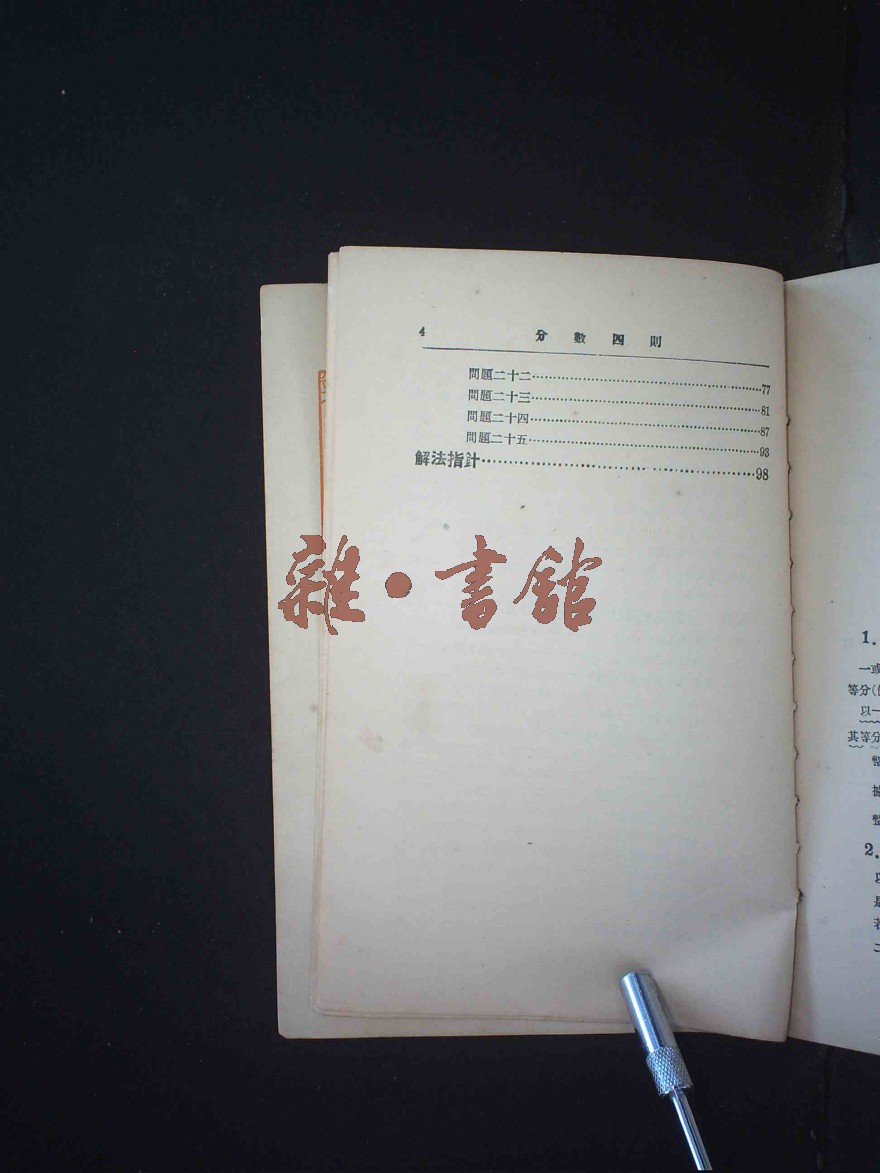 4 分數四則
問題二十二……77
問題二十三……81
問題二十四……87
問題二十五……93
解法指針……98
雜·書館
1.
一或
等分(
以一
其等分
2.